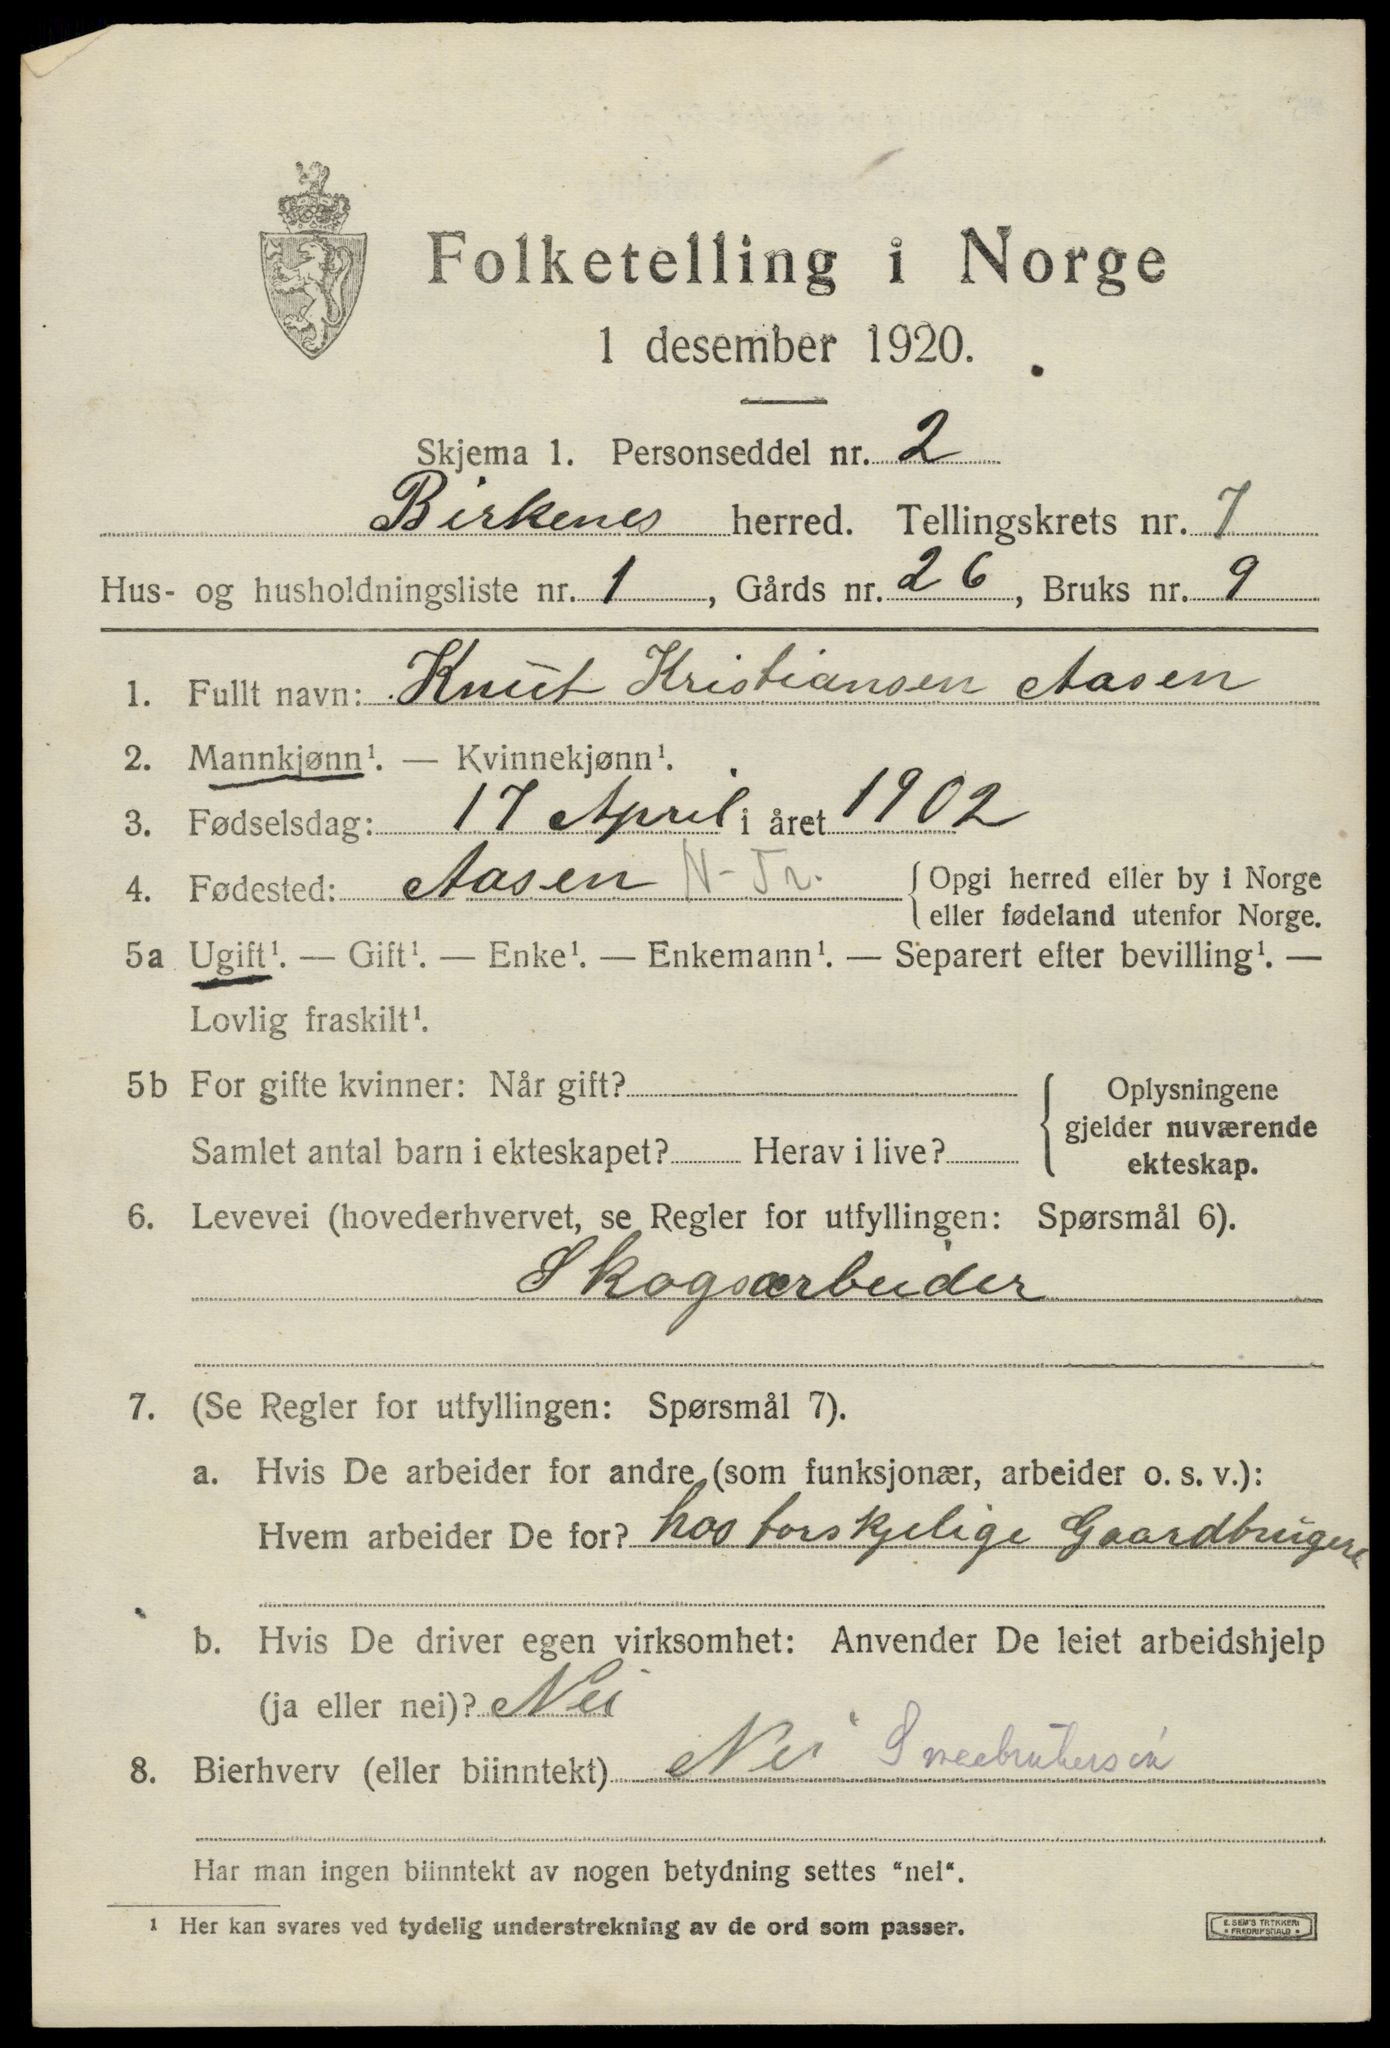 Folketelling i Norge
1 desember 1920.
Skjema 1. Personseddel nr. 2
Birkenes herred. Tellingskrets nr. 7
Hus- og husholdningsliste nr. 1, Gårds nr. 26, Bruks nr. 9
1. Fullt navn: Knut Kristiansen Aasen
2. Mannkjønn¹. — Kvinnekjønn¹.
3. Fødselsdag: 17 April i året 1902
4. Fødested: Aasen N-Tr. { Opgi herred eller by i Norge
eller fødeland utenfor Norge.
5a Ugift¹. — Gift¹. — Enke¹. — Enkemann¹. — Separert efter bevilling¹. —
Lovlig fraskilt¹.
5b For gifte kvinner: Når gift?
Samlet antal barn i ekteskapet? Herav i live?
{ Oplysningene
gjelder nuværende
ekteskap.
6. Levevei (hovederhvervet, se Regler for utfyllingen: Spørsmål 6).
Skogsarbeider
7. (Se Regler for utfyllingen: Spørsmål 7).
a. Hvis De arbeider for andre (som funksjonær, arbeider o. s. v.):
Hvem arbeider De for? hos forskjelige Gaardbrugere
b. Hvis De driver egen virksomhet: Anvender De leiet arbeidshjelp
(ja eller nei)? Nei
8. Bierhverv (eller biinntekt) Nei
Har man ingen biinntekt av nogen betydning settes "nei".
¹ Her kan svares ved tydelig understrekning av de ord som passer.
E. SEM'S TRYKKERI
FREDRIKSHALD